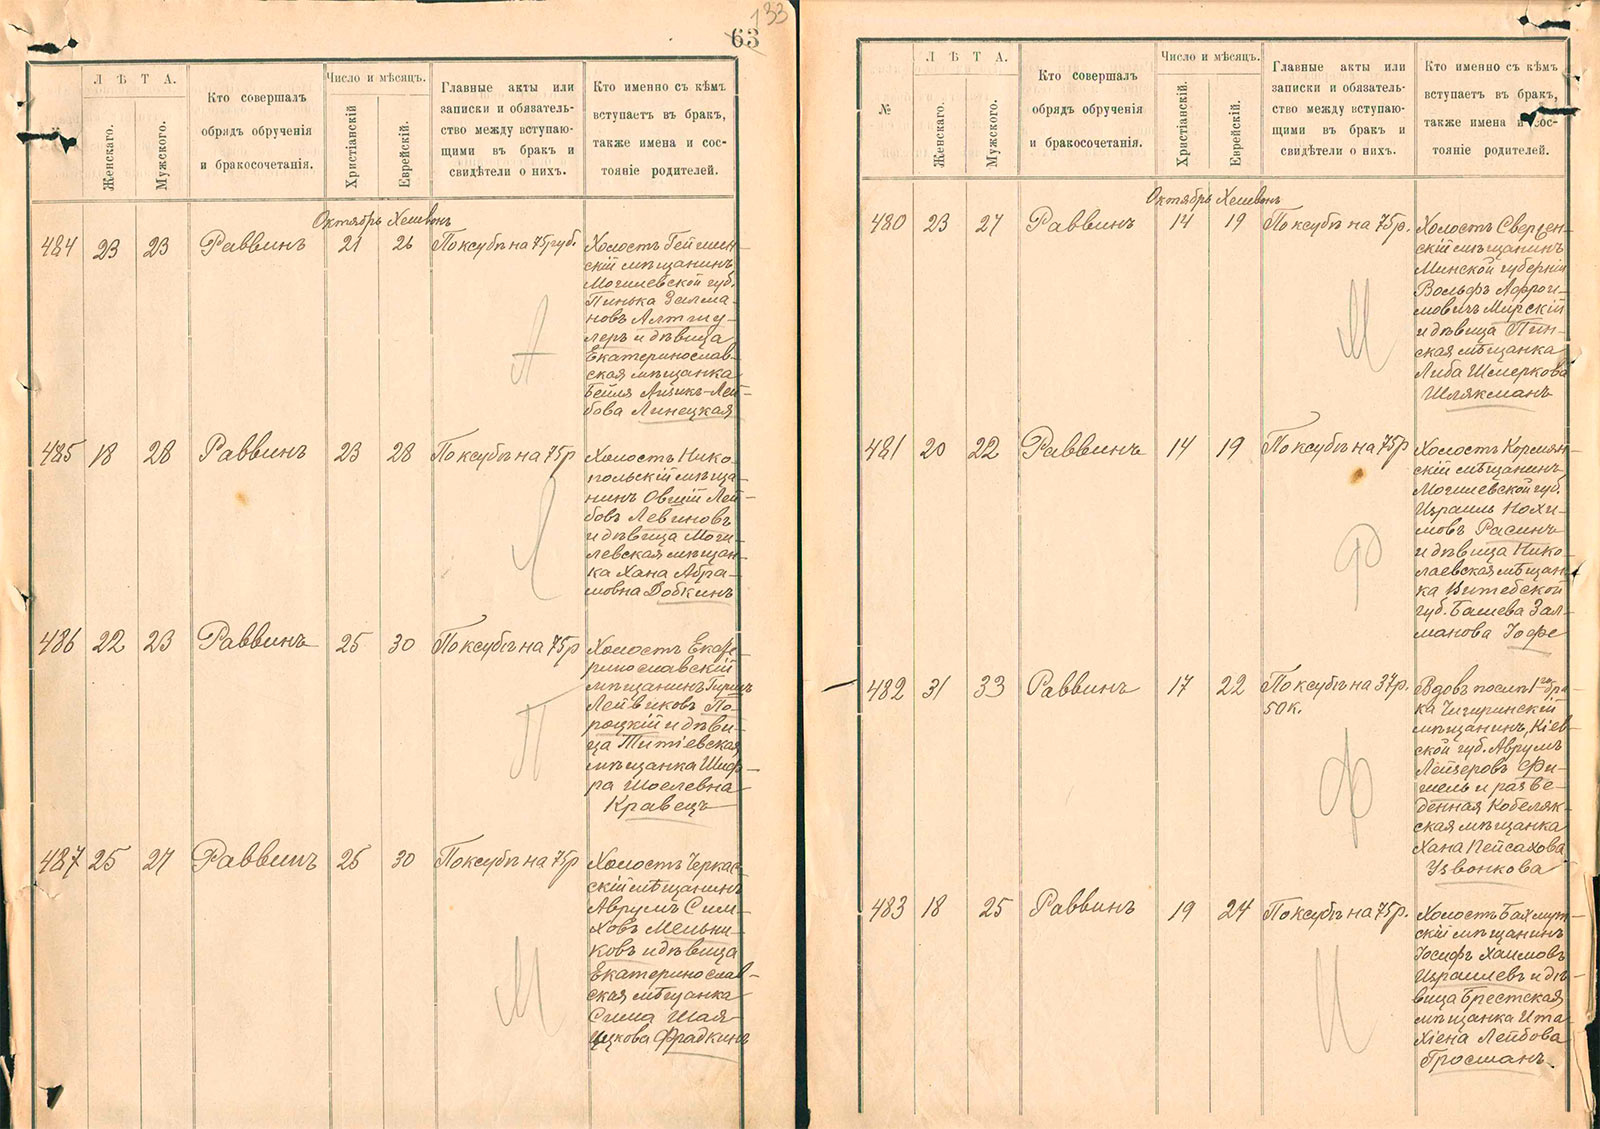 133
63
ЛѢТА.
Женскаго.
Мужского.
Кто совершалъ
обрядъ обрученія
и бракосочетанія.
Число и мѣсяцъ.
Христіанскій
Еврейскій.
Главные акты или
записки и обязатель-
ство между вступаю-
щими въ бракъ и
свидѣтели о нихъ.
Кто именно съ кѣмъ
вступаетъ въ бракъ,
также имена и сос-
тояніе родителей.
Октябрь Хешвонъ
484 23 23 Раввинъ 21 26 По ксубѣ на 75 руб.
Холостъ
скій мѣщанинъ
Могилевской губ.
Пинька Залма-
новъ Алтшу-
леръ и дѣвица
Екатеринослав-
ская мѣщанка
Бейля Айзикъ-Лей-
бова Линецкая
А
485 18 28 Раввинъ 23 28 По ксубѣ на 75 р
Холостъ Нико-
польскій мѣща-
нинъ Овшій Лей-
бовъ Левиновъ
и дѣвица Моги-
левская мѣщан-
ка Хана Абра-
мовна Добкинъ
Л
486 22 23 Раввинъ 25 30 По ксубѣ на 75 р
Холостъ Екате-
ринославскій
мѣщанинъ Гиршъ
Лейвиковъ По-
роцкій и дѣви-
ца Титіевская
мѣщанка Шиф-
ра Шоелевна
Кравецъ
П
487 25 27 Раввинъ 25 30 По ксубѣ на 75 р
Холостъ Черкас-
скій мѣщанинъ
Аврумъ Сим-
ховъ Мельни-
ковъ и дѣвица
Екатеринослав-
ская мѣщанка
Сима Шая
Ицкова Фрадкинъ
М
№
ЛѢТА.
Женскаго.
Мужского.
Кто совершалъ
обрядъ обрученія
и бракосочетанія.
Число и мѣсяцъ.
Христіанскій.
Еврейскій.
Главные акты или
записки и обязатель-
ство между вступаю-
щими въ бракъ и
свидѣтели о нихъ.
Кто именно съ кѣмъ
вступаетъ въ бракъ,
также имена и сос-
тояніе родителей.
Октябрь Хешвонъ
480 23 27 Раввинъ 14 19 По ксубѣ на 75 р.
Холостъ Свержен-
скій мѣщанинъ
Минской губерніи
Вольфъ Афрои-
мовичъ Мирскій
и дѣвица Пин-
ская мѣщанка
Либа Шмеркова
Шляkманъ
М
481 20 22 Раввинъ 14 19 По ксубѣ на 75 р
Холостъ Кормян-
скій мѣщанинъ
Могилевской губ.
Израиль Нохи-
мовъ Расинъ
и дѣвица Нико-
лаевская мѣщан-
ка Витебской
губ. Башева Зал-
манова Іофе
Р
482 31 33 Раввинъ 17 22 По ксубѣ на 37 р.
50 к.
Вдовъ послѣ 1го бра-
ка Чигиринскій
мѣщанинъ, Кіев-
ской губ. Аврумъ
Лейзеровъ Фи-
шель и разве-
денная Кобеляк-
ская мѣщанка
Хана Пейсахова
Узвонкова
Ф
483 18 25 Раввинъ 19 24 По ксубѣ на 75 р.
Холостъ Бахмут-
скій мѣщанинъ
Іосифъ Хаимовъ
Израилевъ и дѣ-
вица Брестская
мѣщанка Ита
Хіена Лейбова
Гросманъ.
И